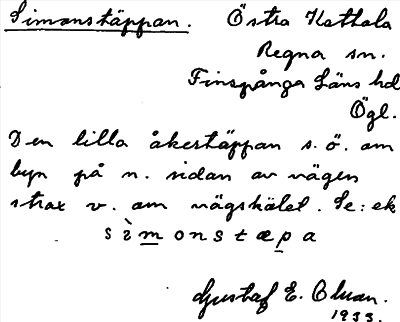 Simonstäppan. Östra Kattala
Regna sn.
Finspånga Läns hd
Ögl.
Den lilla åkertäppan s.ö. om
byn på n. sidan av vägen
strax v. om vägskälet. Se: ek
sìmonstæpa
Gustaf E. Olsson.
1933.